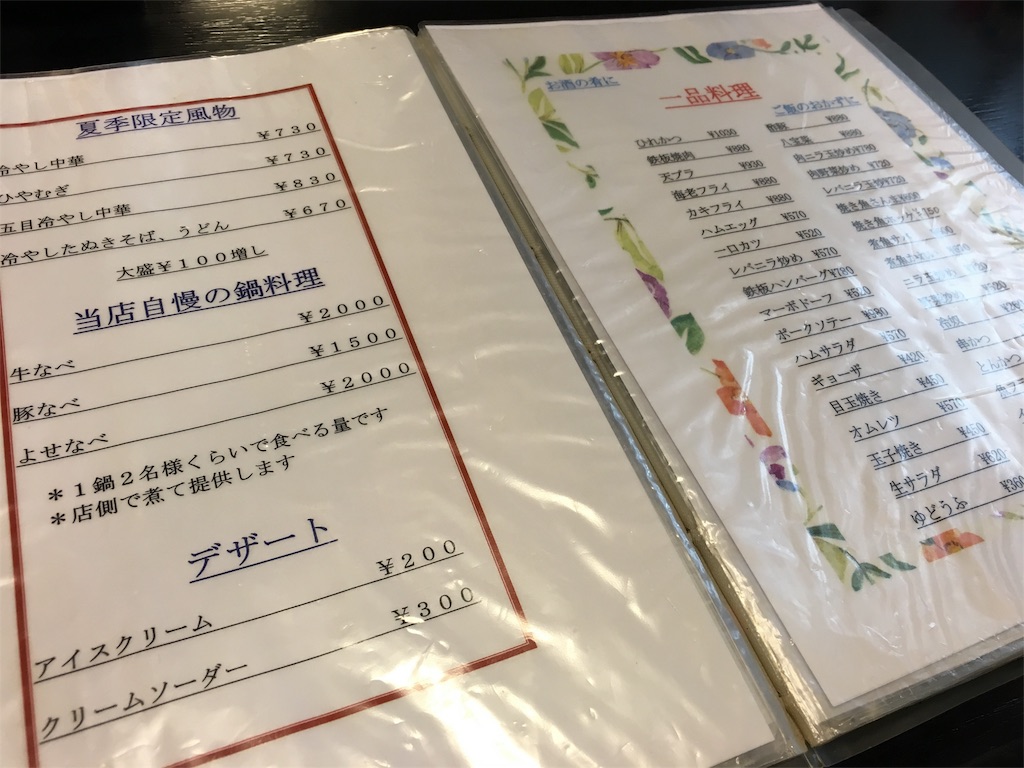 夏季限定風物
冷やし中華 ¥730
ひやむぎ ¥730
五目冷やし中華 ¥830
冷やしたぬきそば、うどん ¥670
大盛¥100増し
当店自慢の鍋料理
牛なべ ¥2000
豚なべ ¥1500
よせなべ ¥2000
＊1鍋2名様くらいで食べる量です
＊店側で煮て提供します
デザート
アイスクリーム ¥200
クリームソーダー ¥300
一品料理
お酒の肴に
ひれかつ ¥1030
鉄板焼肉 ¥880
天プラ ¥930
海老フライ ¥880
カキフライ ¥880
ハムエッグ ¥570
一口カツ ¥520
レバニラ炒め ¥570
鉄板ハンバーグ ¥780
マーボドーフ
ポークソテー
ハムサラダ ¥570
ギョーザ ¥420
目玉焼き ¥450
オムレツ ¥570
玉子焼き ¥450
生サラダ ¥620
ゆどうふ ¥360
ご飯のおかずに
酢豚 ¥880
八宝菜 ¥880
肉ニラ玉炒め ¥780
肉野菜炒め ¥720
レバニラ玉炒 ¥720
焼き魚さんま
焼き魚
煮魚
冷奴
串かつ
とんかつ